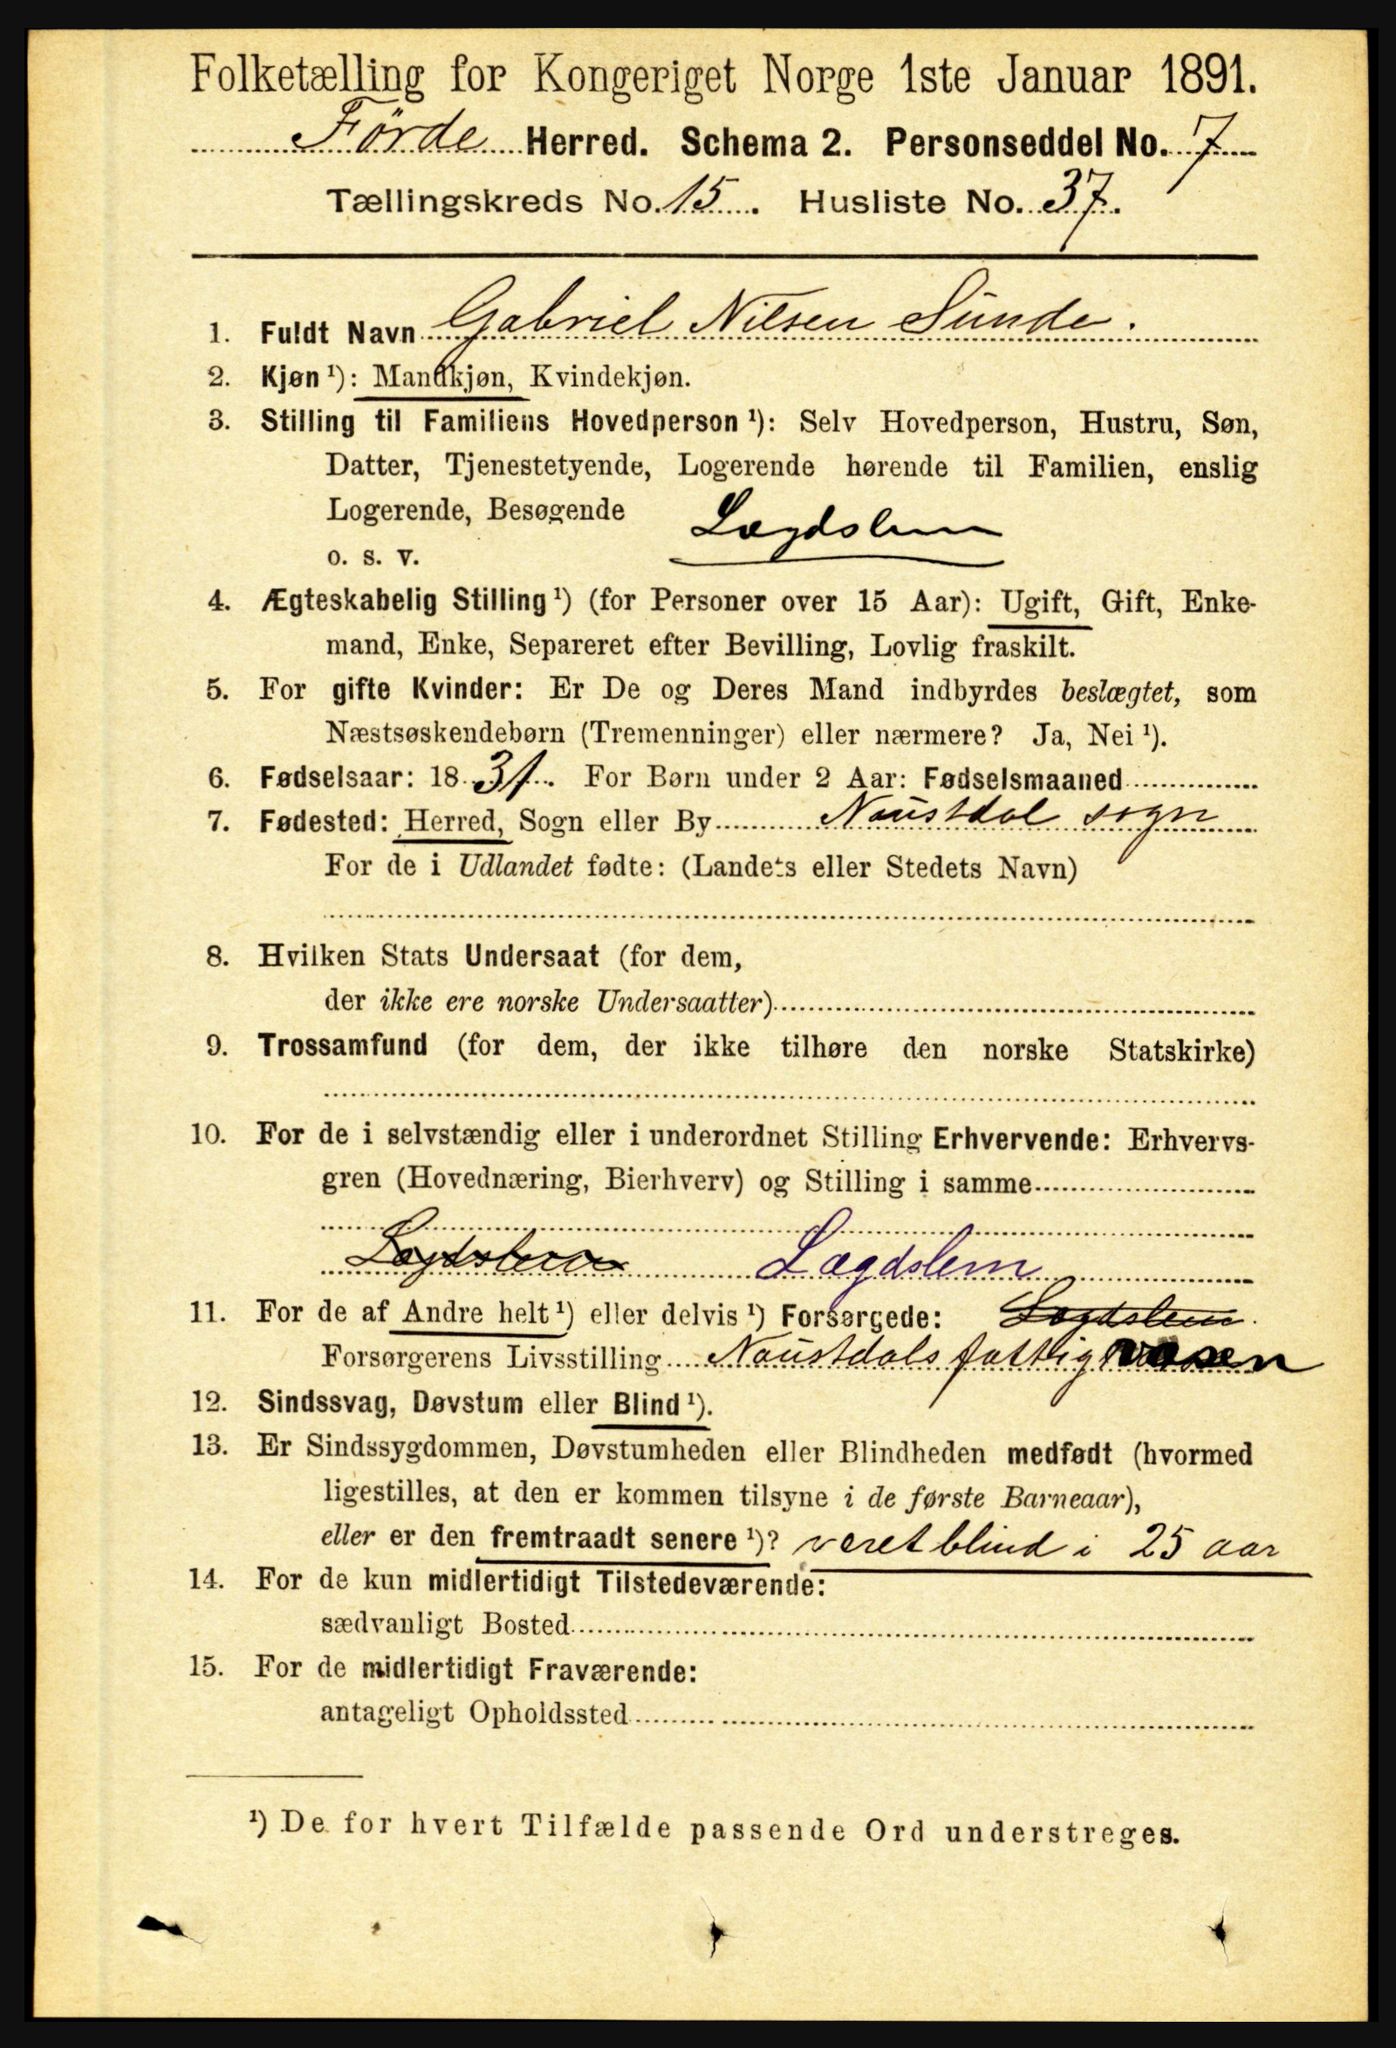 Folketælling for Kongeriget Norge 1ste Januar 1891.
Förde Herred. Schema 2. Personseddel No. 7
Tællingskreds No. 15. Husliste No. 37.
1. Fuldt Navn Gabriel Nilsen Sunde.
2. Kjøn ¹): Mandkjøn, Kvindekjøn.
3. Stilling til Familiens Hovedperson ¹): Selv Hovedperson, Hustru, Søn,
Datter, Tjenestetyende, Logerende hørende til Familien, enslig
Logerende, Besøgende Lægdslem
o. s. v.
4. Ægteskabelig Stilling ¹) (for Personer over 15 Aar): Ugift, Gift, Enke-
mand, Enke, Separeret efter Bevilling, Lovlig fraskilt.
5. For gifte Kvinder: Er De og Deres Mand indbyrdes beslægtet, som
Næstsøskendebørn (Tremenninger) eller nærmere? Ja, Nei ¹).
6. Fødselsaar: 1831. For Børn under 2 Aar: Fødselsmaaned
7. Fødested: Herred, Sogn eller By Naustdal sogn
For de i Udlandet fødte: (Landets eller Stedets Navn)
8. Hvilken Stats Undersaat (for dem,
der ikke ere norske Undersaatter)
9. Trossamfund (for dem, der ikke tilhøre den norske Statskirke)
10. For de i selvstændig eller i underordnet Stilling Erhvervende: Erhvervs-
gren (Hovednæring, Bierhverv) og Stilling i samme
Lægdslem Lægdslem
11. For de af Andre helt ¹) eller delvis ¹) Forsørgede: Lægdslem.
Forsørgerens Livsstilling Naustdals fattigvæsen
12. Sindssvag, Døvstum eller Blind ¹).
13. Er Sindssygdommen, Døvstumheden eller Blindheden medfødt (hvormed
ligestilles, at den er kommen tilsyne i de første Barneaar),
eller er den fremtraadt senere ¹)? været blind i 25 aar
14. For de kun midlertidigt Tilstedeværende:
sædvanligt Bosted
15. For de midlertidigt Fraværende:
antageligt Opholdssted
¹) De for hvert Tilfælde passende Ord understreges.